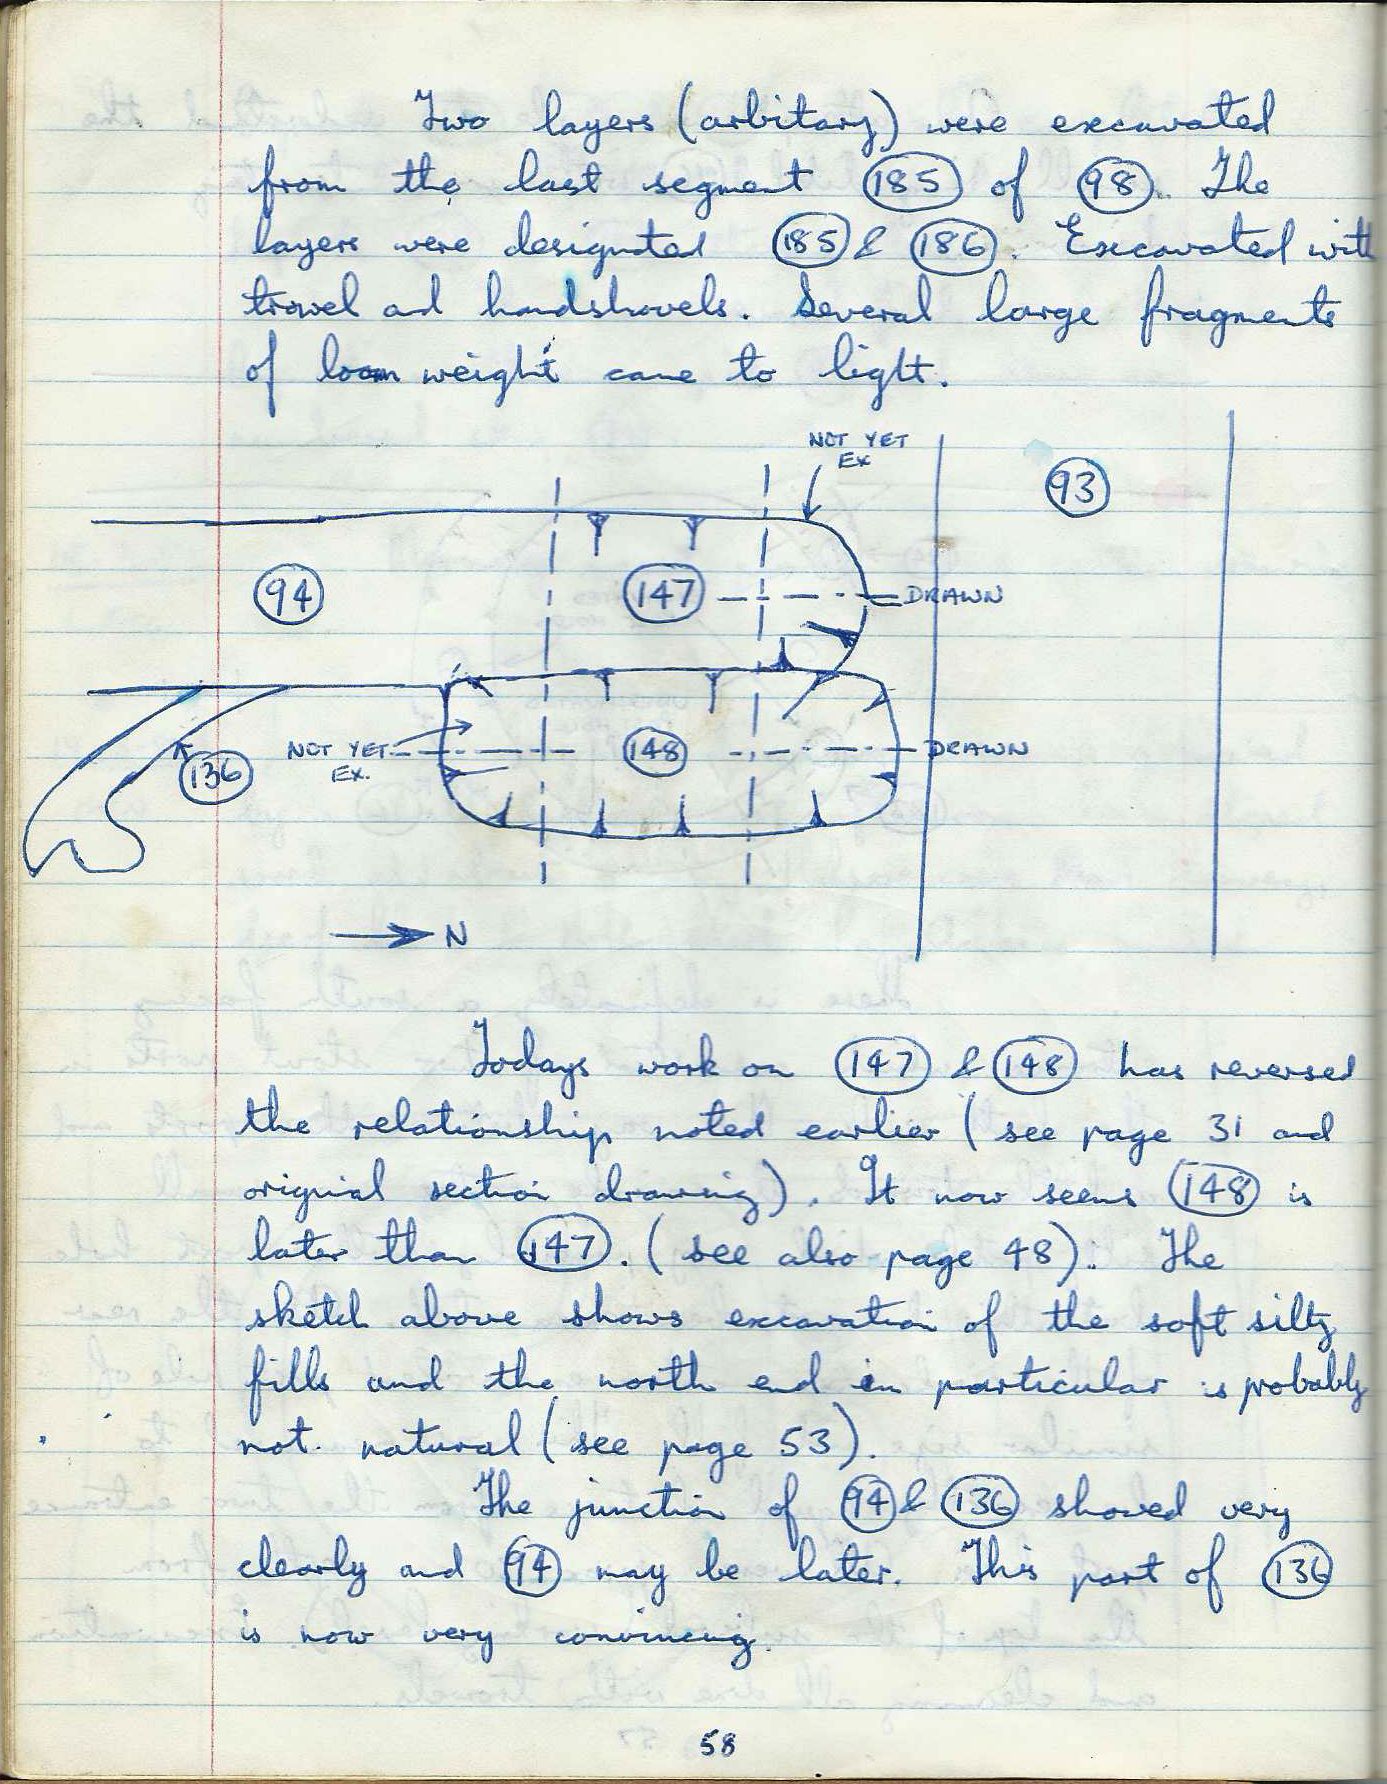 Two layers (arbitary) were excavated
from the last segment 185 of 98. The
layers were designated 185 & 186. Excavated with
trowel and handshovels. Several large fragments
of loom weight came to light.
NOT YET
EX
93
94
147
DRAWN
136
NOT YET
EX.
148
DRAWN
N
Todays work on 147 & 148 has reversed
the relationship noted earlier (see page 31 and
original section drawing). It now seems 148 is
later than 147. (see also page 48). The
sketch above shows excavation of the soft silty
fills and the north end in particular is probably
not natural (see page 53).
The junction of 94 & 136 showed very
clearly and 94 may be later. This part of 136
is now very convincing.
58